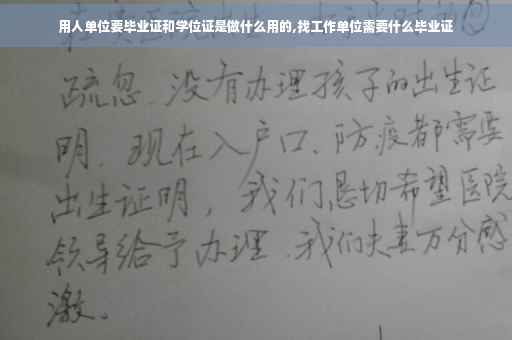 用人单位要毕业证和学位证是做什么用的,找工作单位需要什么毕业证
疏忽.没有办理孩子的出生证
明.现在入户口、防疫都需要
出生证明，我们恳切希望医院
领导给予办理.我们夫妻万分感
激。